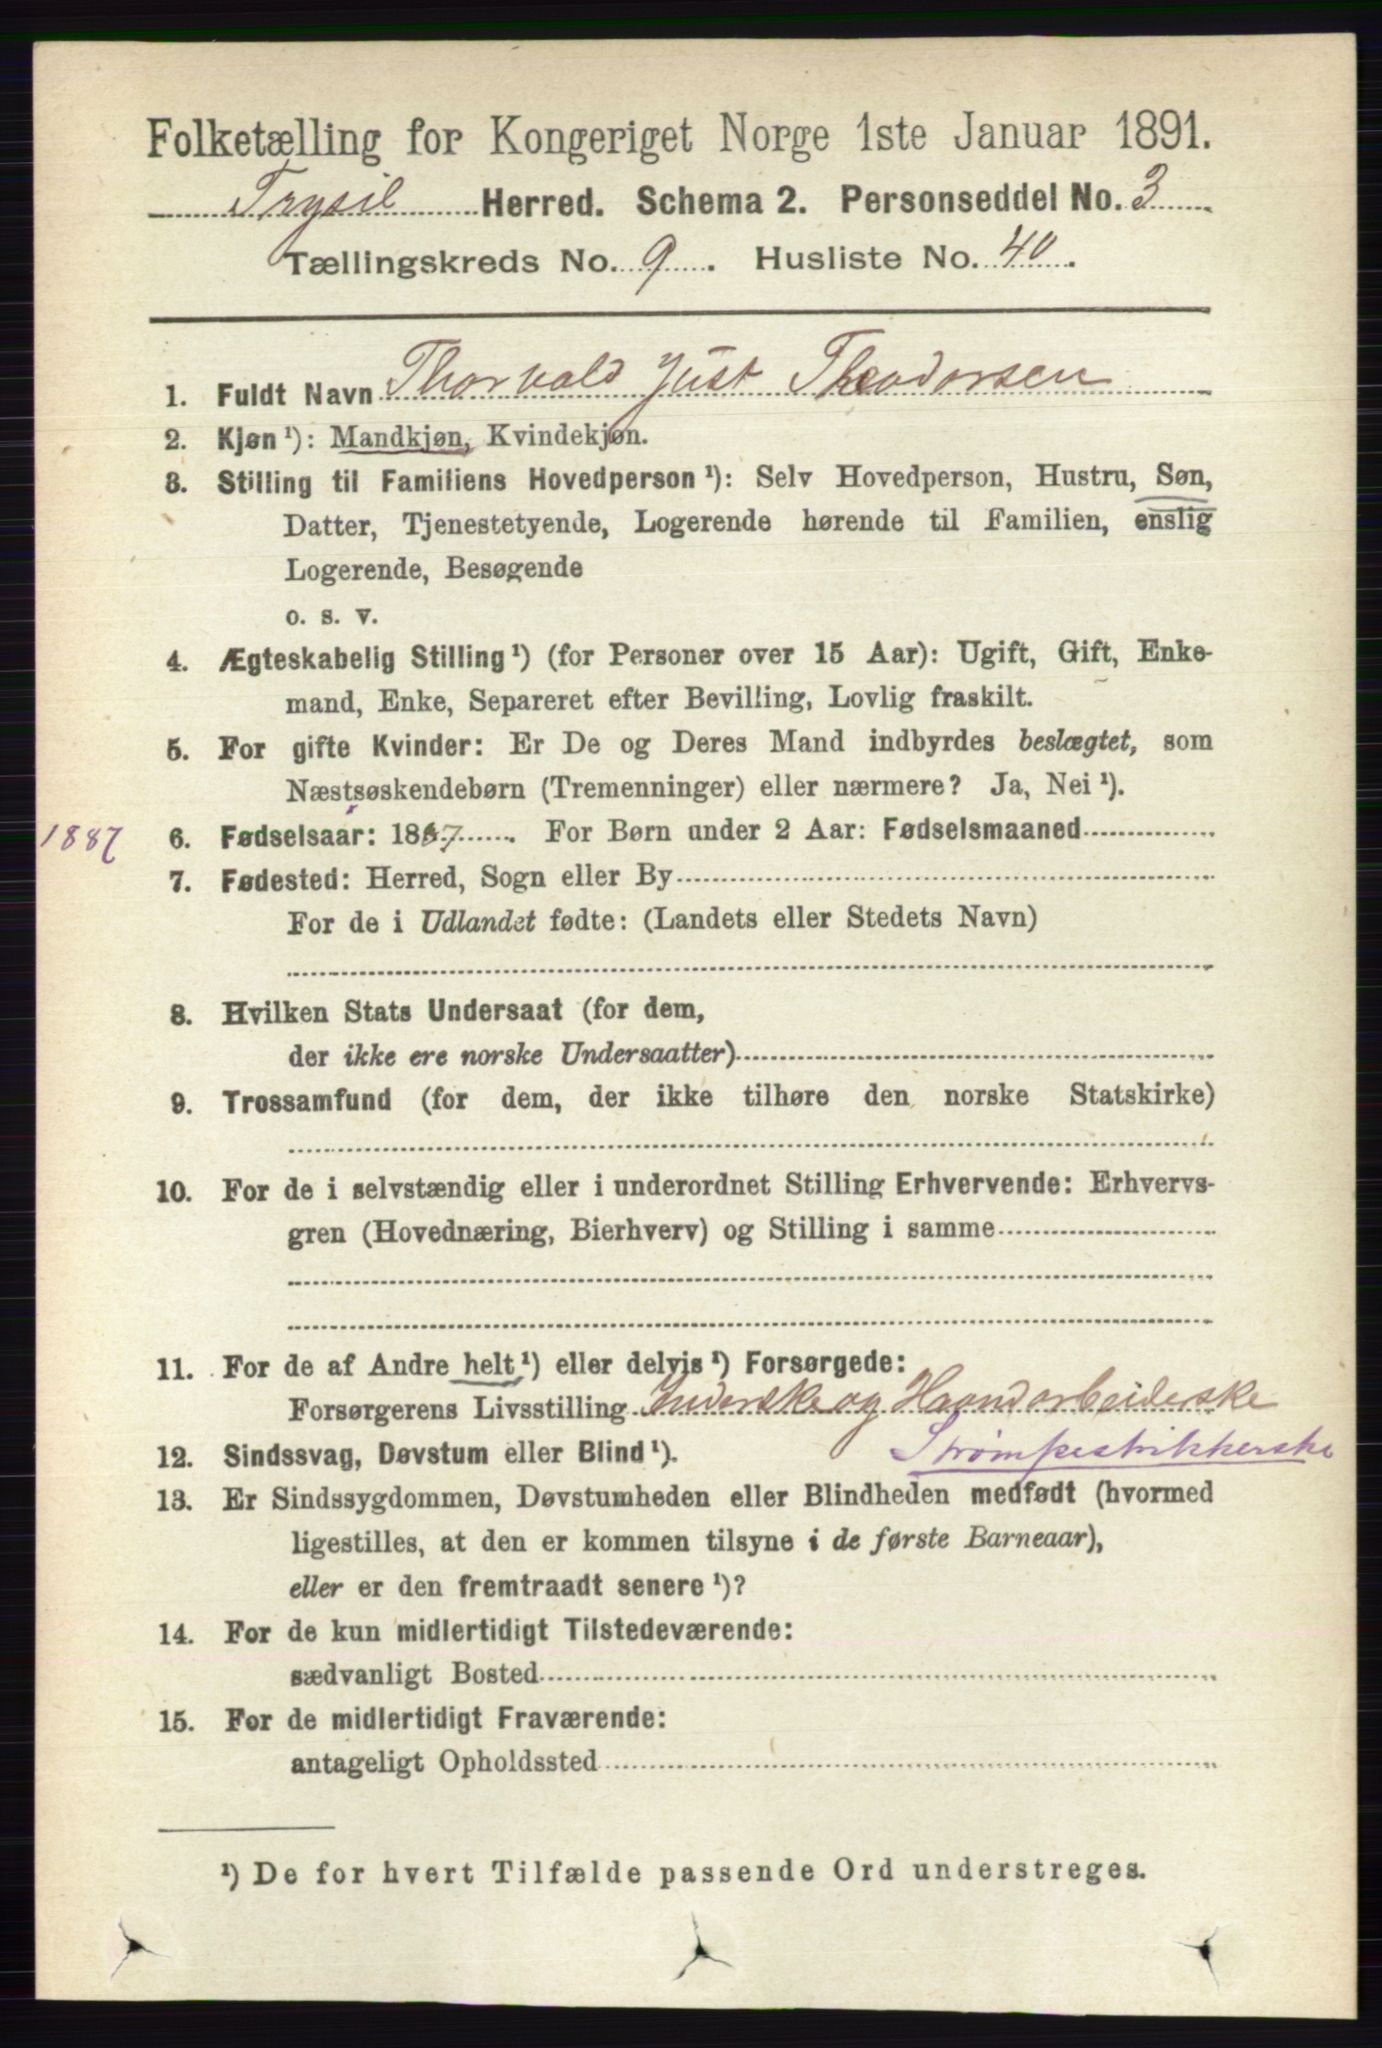 Folketælling for Kongeriget Norge 1ste Januar 1891.
Trysil Herred. Schema 2. Personseddel No. 3
Tællingskreds No. 9. Husliste No. 40.
1. Fuldt Navn Thorvald Just Theodorsen
2. Kjøn¹): Mandkjøn, Kvindekjøn.
3. Stilling til Familiens Hovedperson¹): Selv Hovedperson, Hustru, Søn,
Datter, Tjenestetyende, Logerende hørende til Familien, enslig
Logerende, Besøgende
o. s. v.
4. Ægteskabelig Stilling¹) (for Personer over 15 Aar): Ugift, Gift, Enke-
mand, Enke, Separeret efter Bevilling, Lovlig fraskilt.
5. For gifte Kvinder: Er De og Deres Mand indbyrdes beslægtet, som
Næstsøskendebørn (Tremenninger) eller nærmere? Ja, Nei¹).
1887 6. Fødselsaar: 1887. For Børn under 2 Aar: Fødselsmaaned
7. Fødested: Herred, Sogn eller By
For de i Udlandet fødte: (Landets eller Stedets Navn)
8. Hvilken Stats Undersaat (for dem,
der ikke ere norske Undersaatter)
9. Trossamfund (for dem, der ikke tilhøre den norske Statskirke)
10. For de i selvstændig eller i underordnet Stilling Erhvervende: Erhvervs-
gren (Hovednæring, Bierhverv) og Stilling i samme
11. For de af Andre helt¹) eller delvis¹) Forsørgede:
Forsørgerens Livsstilling og Haandarbeiderske
12. Sindssvag, Døvstum eller Blind¹). Strømpestrikkerske
13. Er Sindssygdommen, Døvstumheden eller Blindheden medfødt (hvormed
ligestilles, at den er kommen tilsyne i de første Barneaar),
eller er den fremtraadt senere¹)?
14. For de kun midlertidigt Tilstedeværende:
sædvanligt Bosted
15. For de midlertidigt Fraværende:
antageligt Opholdssted
¹) De for hvert Tilfælde passende Ord understreges.